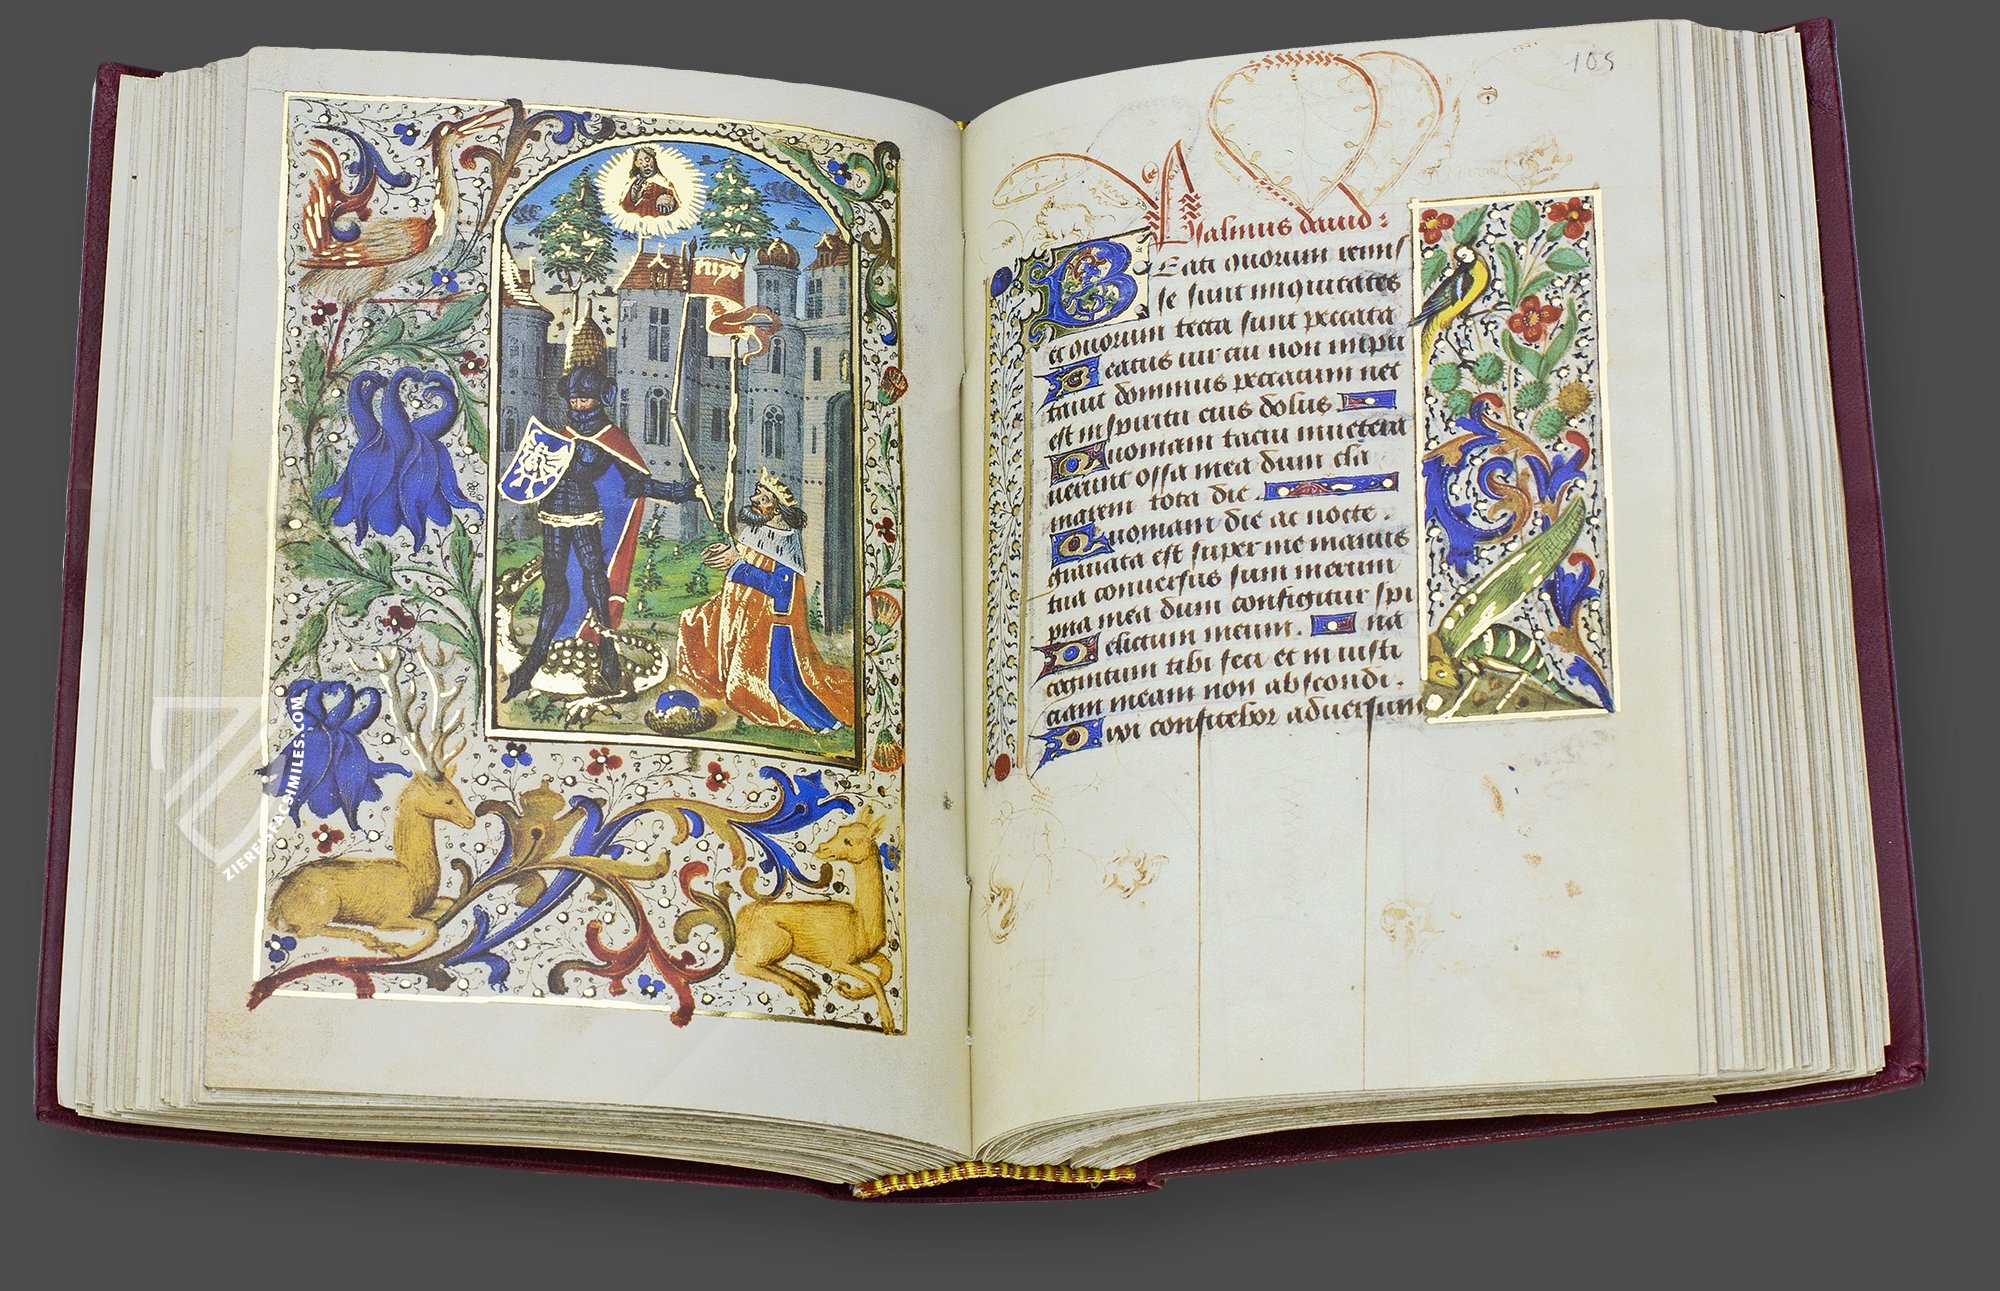 105
Psalmus dauid :
Beati quorum remis
se sunt iniquitates
et quorum tecta sunt peccata
Beatus uir cui non inpu
tauit dominus peccatum nec
est in spiritu eius dolus
Quoniam tacui inuetera
uerunt ossa mea dum cla
marem tota die .
Quoniam die ac nocte .
grauata est super me manus
tua conuersus sum in erum
pna mea dum configitur spi
na
Delictum meum .
cognitum tibi feci et iniusti
ciam meam non abscondi .
Dixi confitebor aduersum
ZIEREIS FACSIMILES.COM